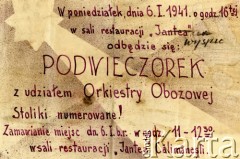 W poniedziałek, dnia 6.I.1941. o godz. 16tej
w sali restauracji „Jantea"
odbędzie się:
PODWIECZOREK
z udziałem Orkiestry Obozowej
Stoliki numerowane!
Zamawianie miejsc dn. 6.I.br. w godz. 11-12³⁰
w sali-restauracji „Jantea"